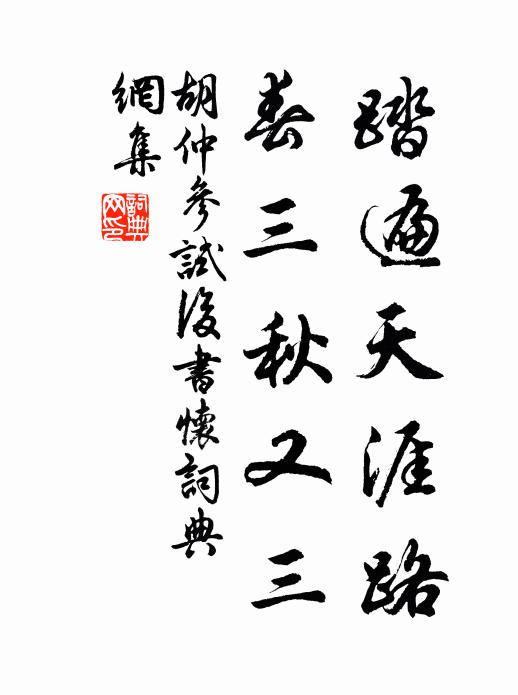 踏遍天涯路
春三秋又三
胡仲參試後書懷詞典
網集
詞典网印